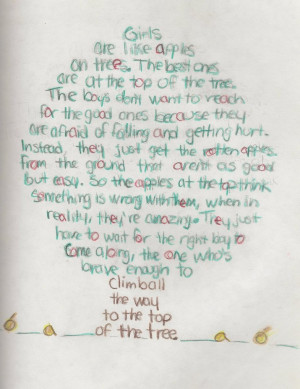 Girls
are like apples
on trees. The best ones
are at the top of the tree.
The boys dont want to reach
for the good ones because they
are afraid of falling and getting hurt.
Instead, they just get the rotten apples
from the ground that aren't as good
but easy. So the apples at the top think
something is wrong with them, when in
reality, they're amazing. They just
have to wait for the right boy to
come along, the one who's
brave enough to
climball
the way
to the top
of the tree